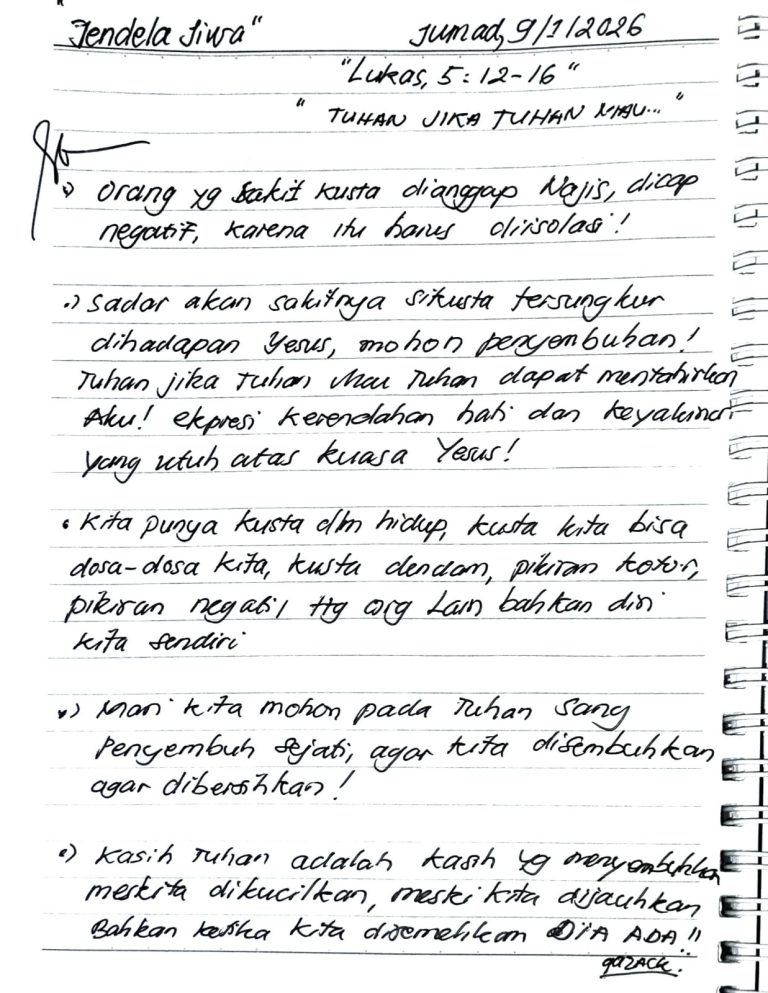 "Jendela Jiwa" Jumad, 9/1/2026
"Lukas, 5:12-16"
"TUHAN JIKA TUHAN MAU..."
Orang yg sakit kusta dianggap Najis, dicap
negatif, karena itu harus diisolasi!
Sadar akan sakitnya sikusta tersungkur
dihadapan Yesus, mohon penyembuhan!
Tuhan jika Tuhan Mau Tuhan dapat mentahirkan
Aku! ekpresi kerendahan hati dan keyakinan
yang utuh atas kuasa Yesus!
• Kita punya kusta dlm hidup, kusta kita bisa
dosa-dosa kita, kusta dendam, pikiran kotor,
pikiran negatif ttg org Lain bahkan diri
kita sendiri
Mari kita mohon pada Tuhan Sang
Penyembuh Sejati, agar kita disembuhkan
agar dibersihkan!
Kasih Tuhan adalah kasih yg menyembuhkan
meskita dikucilkan, meski kita dijauhkan
Bahkan ketika kita diremehkan DIA ADA!!
gozack.